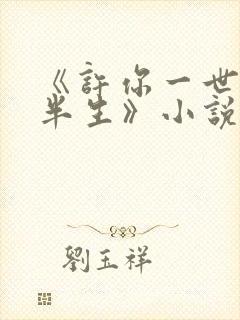 《許你一世
半生》小說
劉玉祥